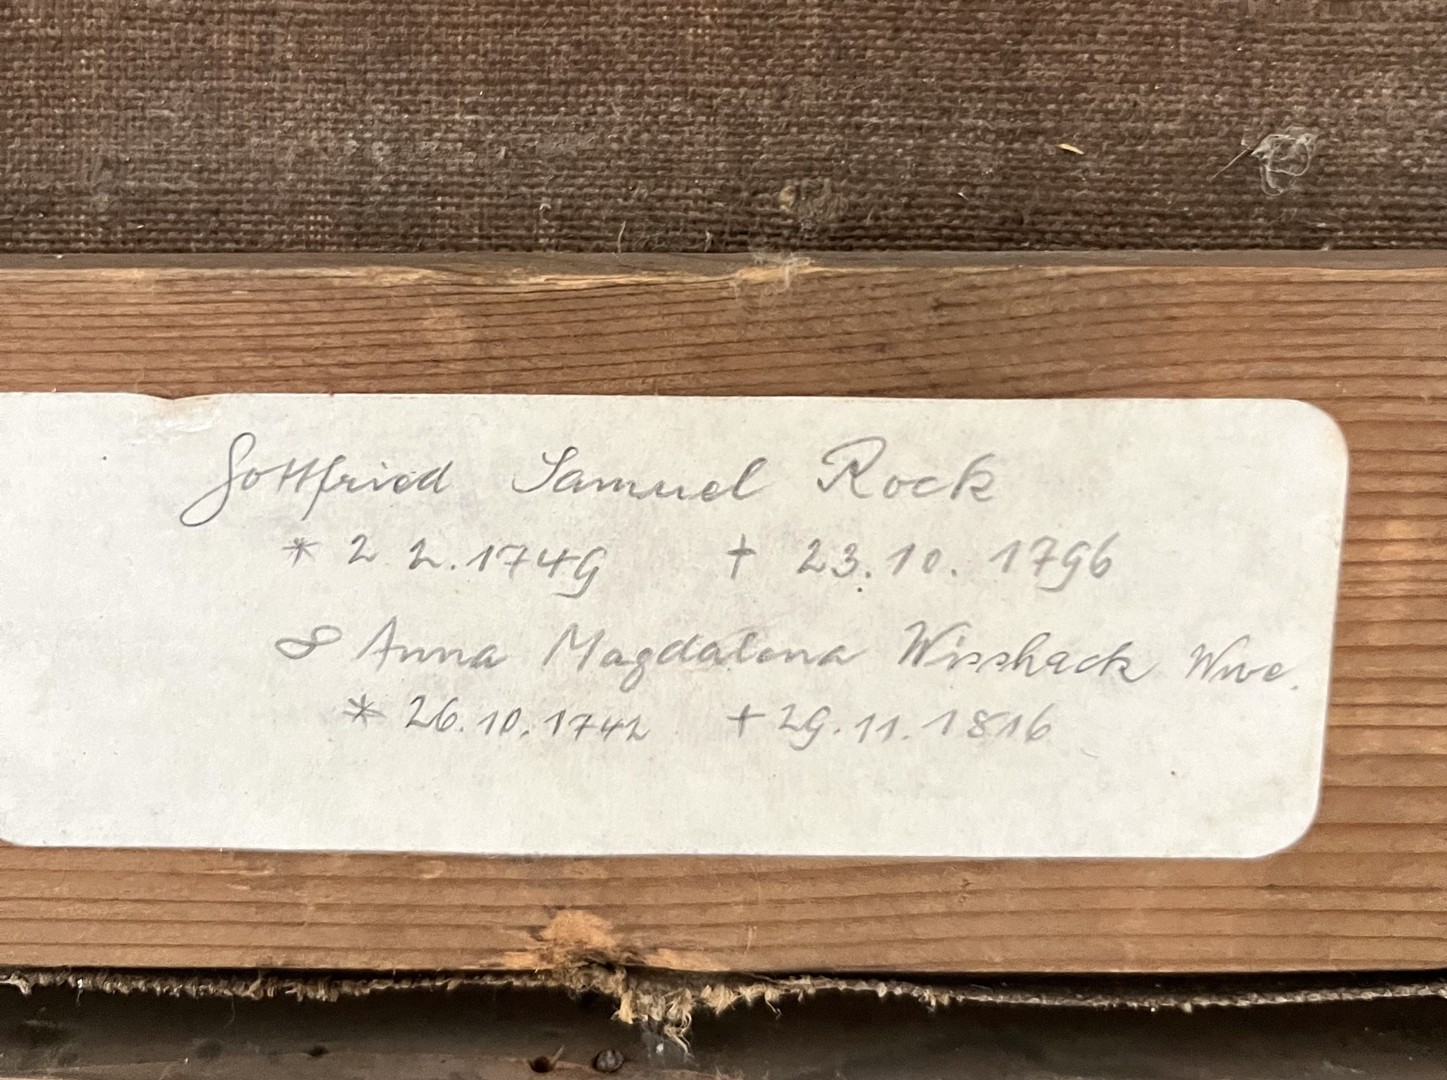 Gottfried Samuel Rock
* 2 2.1749 † 23.10.1796
∞ Anna Magdalena Wisshack Wwe.
* 26.10.1742 † 29.11.1816